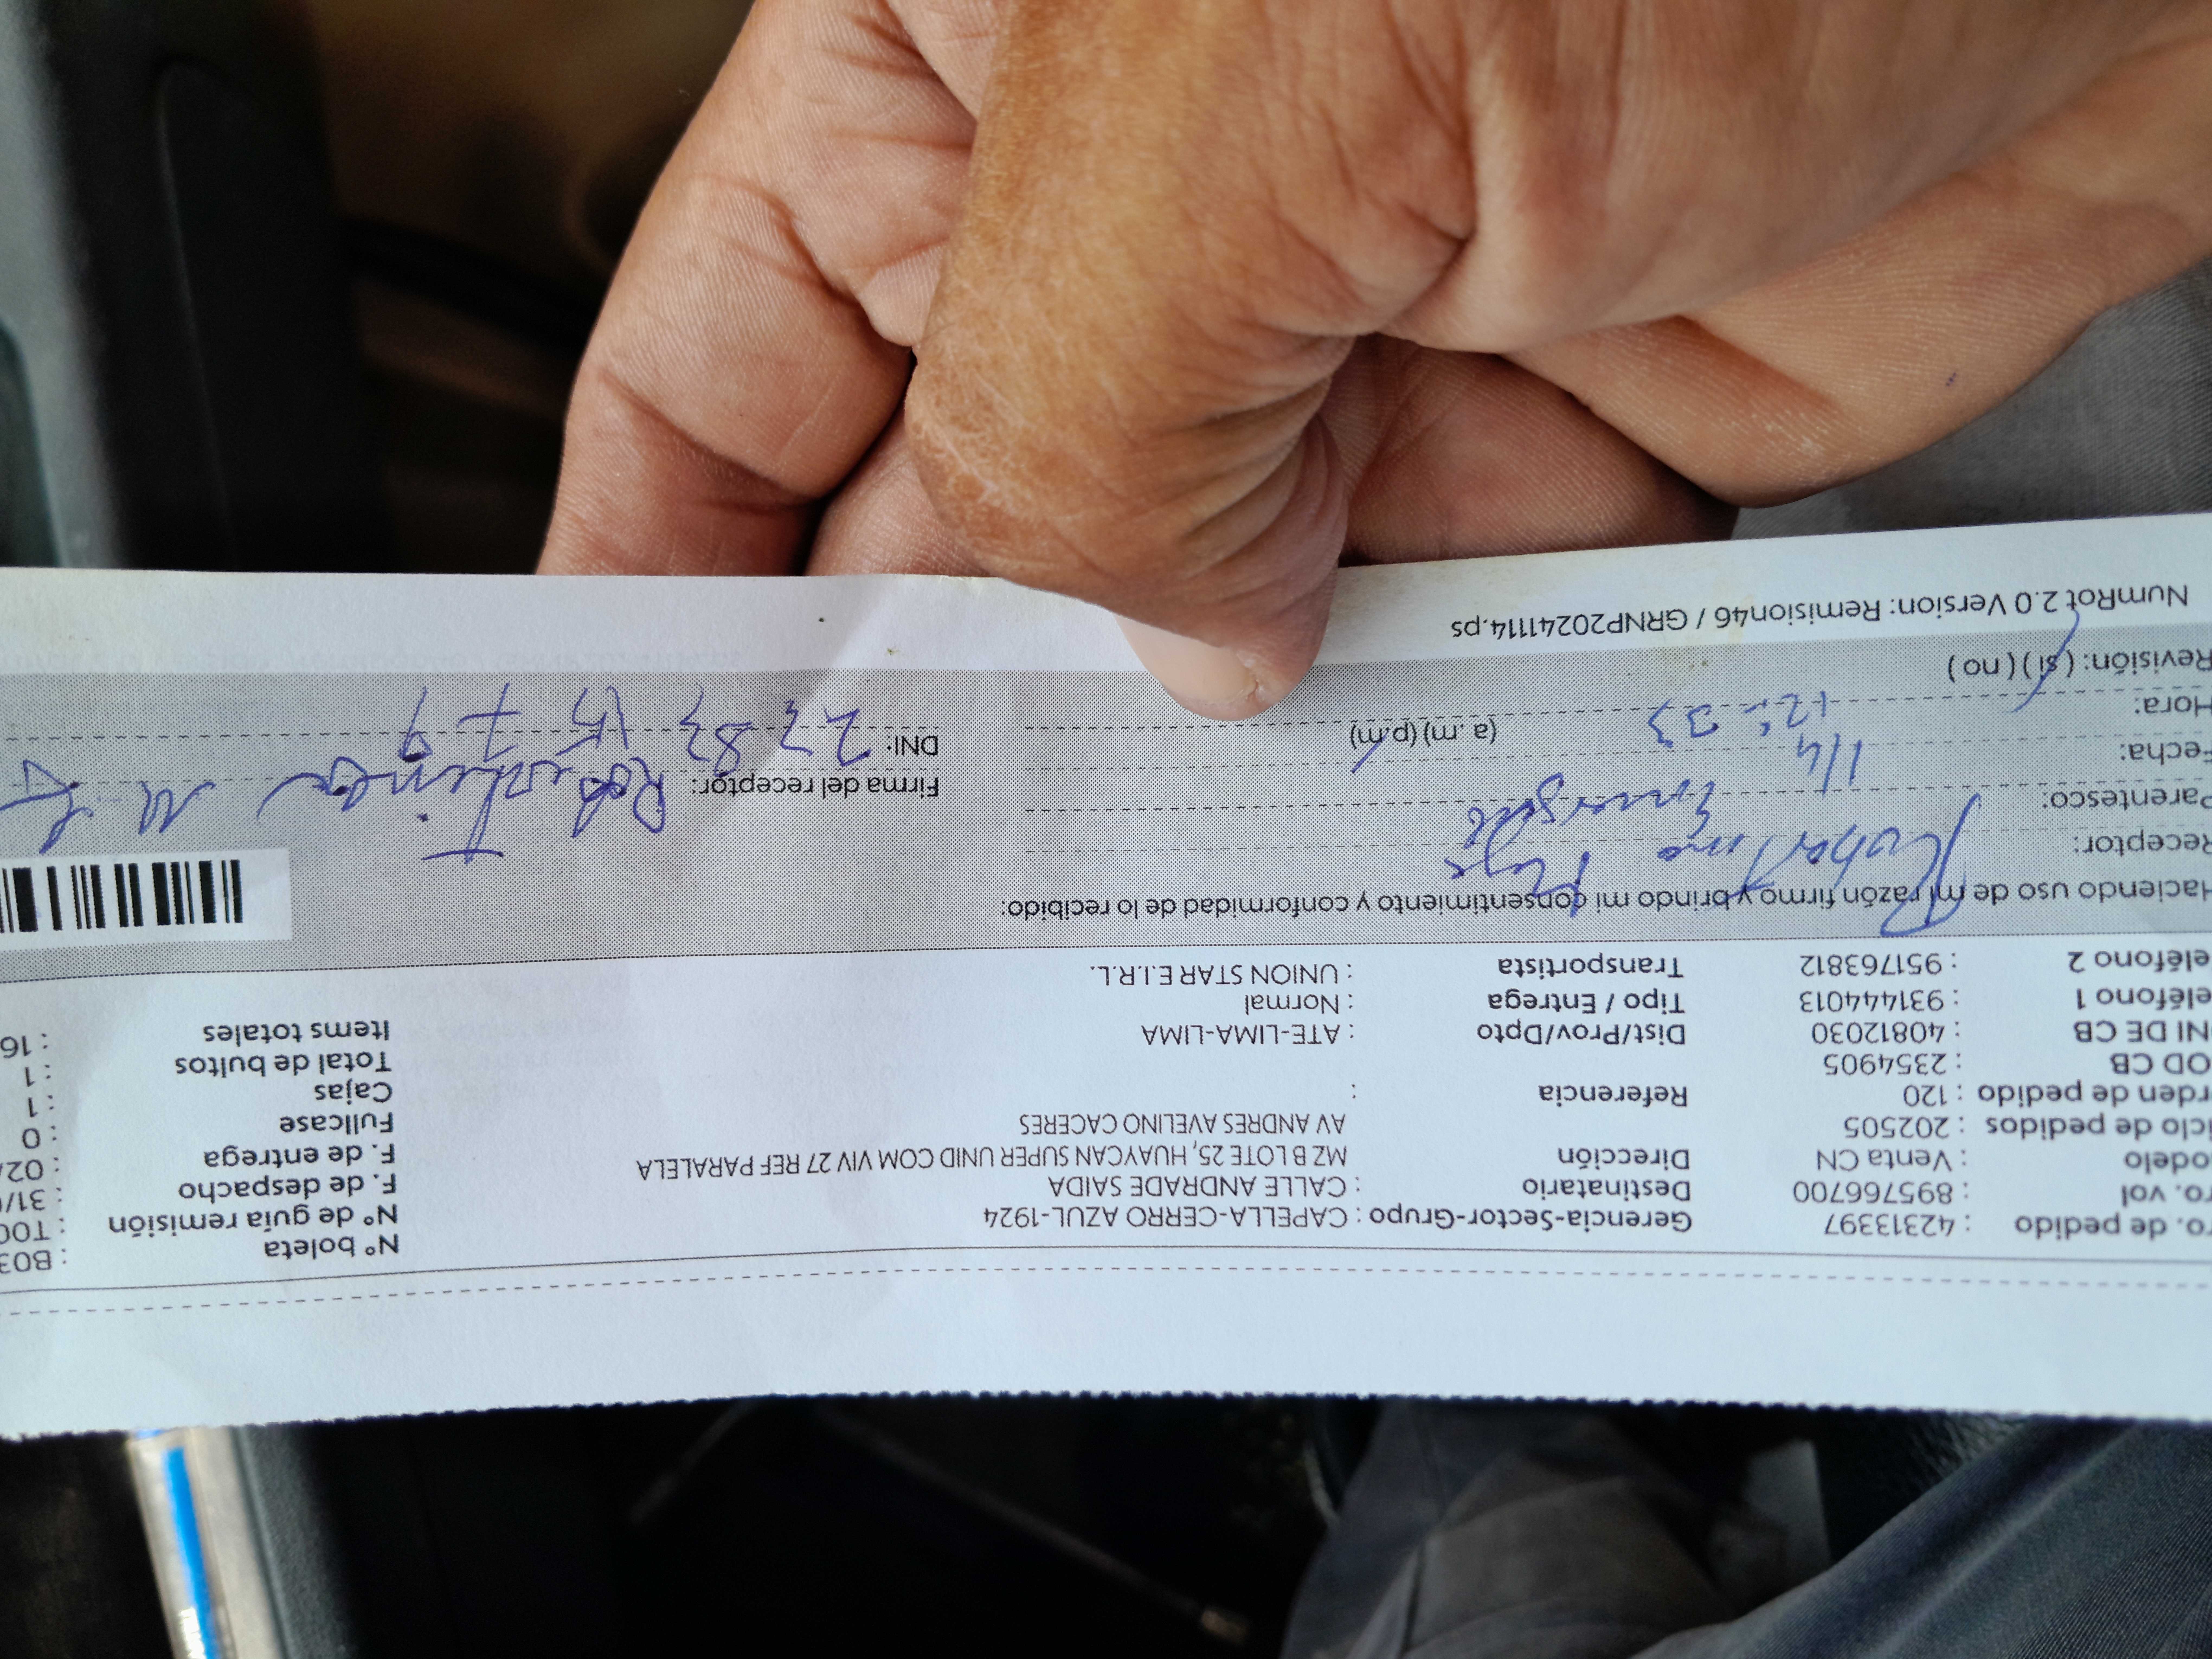 ro. de pedido : 42313397 Gerencia-Sector-Grupo : CAPELLA-CERRO AZUL-1924 N° boleta : B03
ro. vol : 895766700 Destinatario : CALLE ANDRADE SAIDA N° de guía remisión : T00
odelo : Venta CN Dirección MZ B LOTE 25, HUAYCAN SUPER UNID COM VIV 27 REF PARALELA F. de despacho : 31/
iclo de pedidos : 202505 AV ANDRES AVELINO CACERES F. de entrega : 02/
rden de pedido : 120 Referencia : Fullcase : 0
OD CB : 2354905 Cajas : 1
NI DE CB : 40812030 Dist/Prov/Dpto : ATE-LIMA-LIMA Total de bultos : 1
eléfono 1 : 931444013 Tipo / Entrega : Normal Items totales : 16
eléfono 2 : 951763812 Transportista : UNION STAR E.I.R.L.
Haciendo uso de mi razón firmo y brindo mi consentimiento y conformidad de lo recibido:
Receptor:
Parentesco:
Firma del receptor:
Fecha: 1/4
Hora: 12:33 (a. m) (p.m) DNI:
Revisión: ( si ) ( no )
NumRot 2.0 Version: Remision46 / GRNP20241114.ps